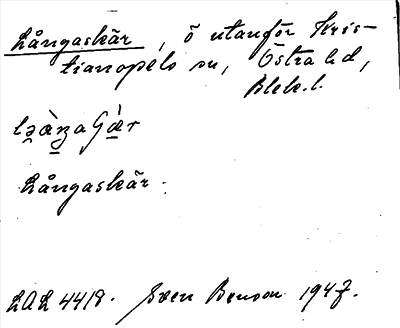 Långaskär, ö utanför Kris-
tianopels sn, Östra hd,
Blek. l.
Långaskär.
LAL 4418. Sven Benson 1947.